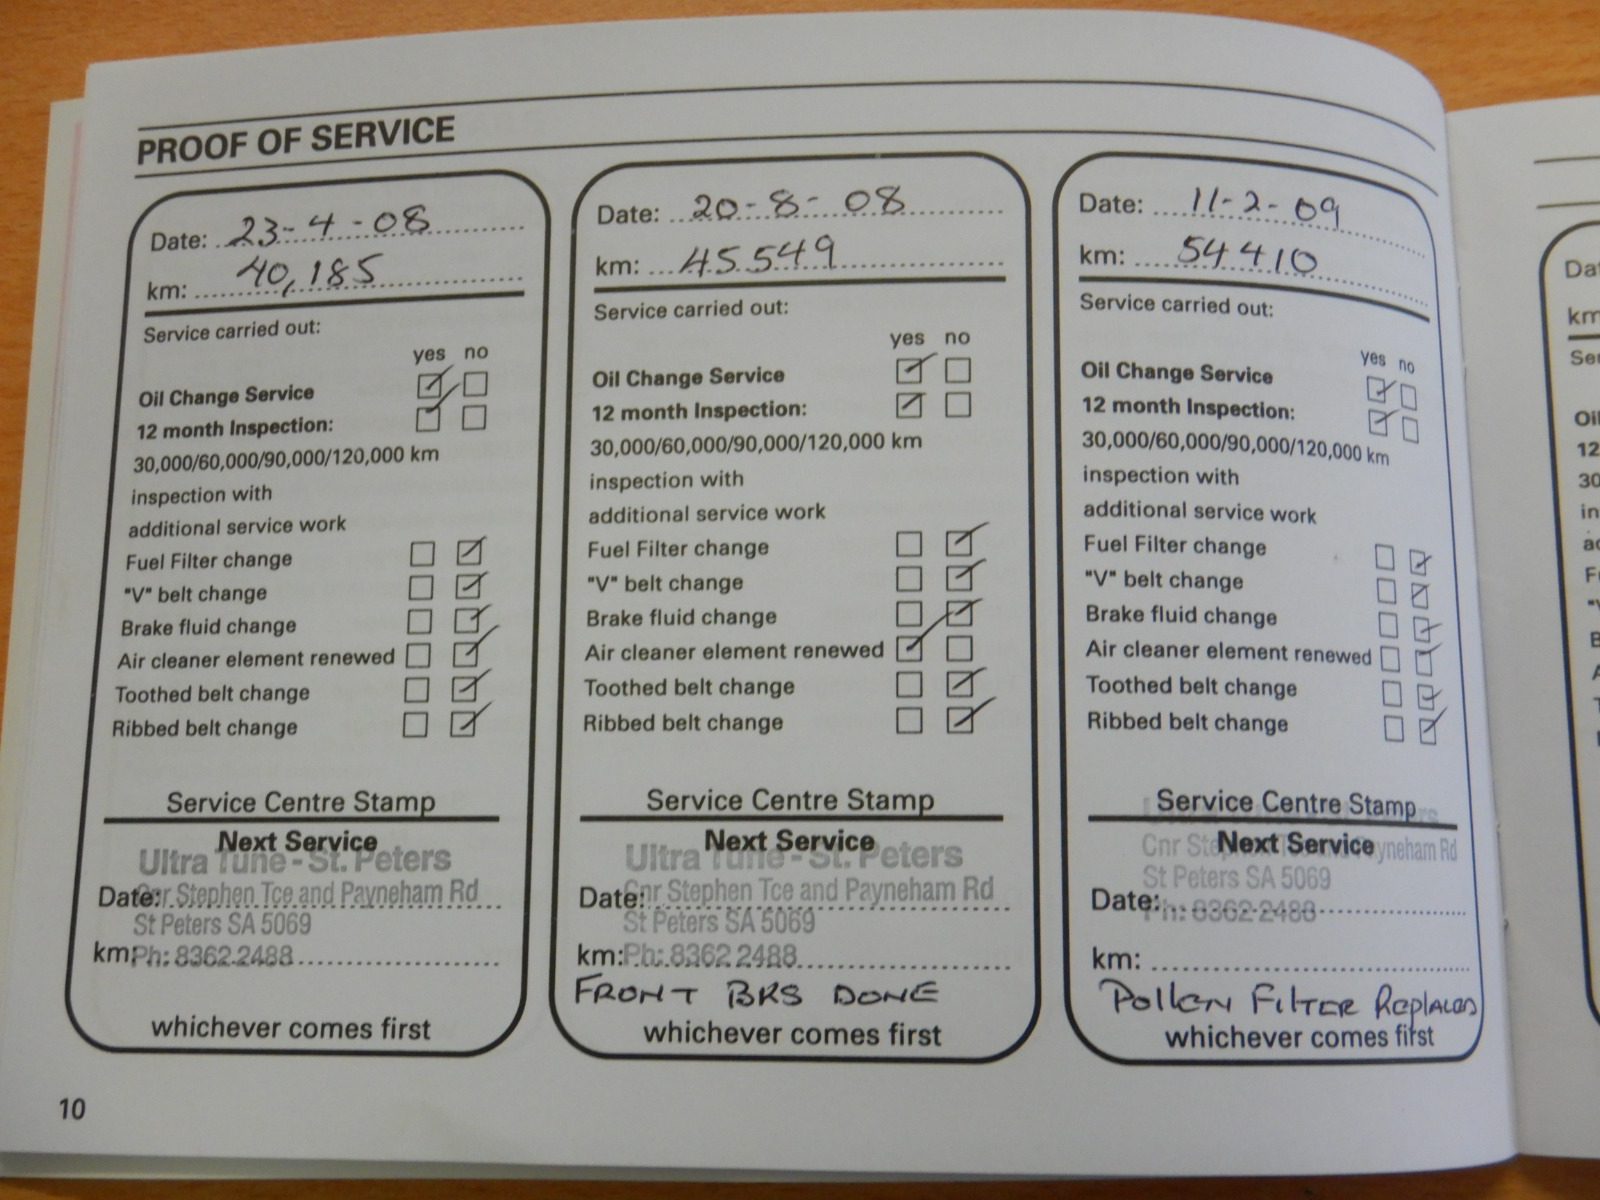 PROOF OF SERVICE
Date: 23-4-08
km: 40,185
Service carried out:
yes no
Oil Change Service
12 month Inspection:
30,000/60,000/90,000/120,000 km
inspection with
additional service work
Fuel Filter change
"V" belt change
Brake fluid change
Air cleaner element renewed
Toothed belt change
Ribbed belt change
Service Centre Stamp
Next Service
Ultra Tune - St. Peters
Date:
Cnr Stephen Tce and Payneham Rd
St Peters SA 5069
km:
Ph: 8362 2488
whichever comes first
Date: 20-8-08
km: 45549
Service carried out:
yes no
Oil Change Service
12 month Inspection:
30,000/60,000/90,000/120,000 km
inspection with
additional service work
Fuel Filter change
"V" belt change
Brake fluid change
Air cleaner element renewed
Toothed belt change
Ribbed belt change
Service Centre Stamp
Next Service
Ultra Tune - St. Peters
Date:
Cnr Stephen Tce and Payneham Rd
St Peters SA 5069
km:
Ph: 8362 2488
FRONT BRS DONE
whichever comes first
Date: 11-2-09
km: 54410
Service carried out:
yes no
Oil Change Service
12 month Inspection:
30,000/60,000/90,000/120,000 km
inspection with
additional service work
Fuel Filter change
"V" belt change
Brake fluid change
Air cleaner element renewed
Toothed belt change
Ribbed belt change
Service Centre Stamp
Next Service
Cnr Stephen Tce and Payneham Rd
St Peters SA 5069
Date:
Ph: 8362-2488
km:
Pollen Filter Replaced
whichever comes first
10